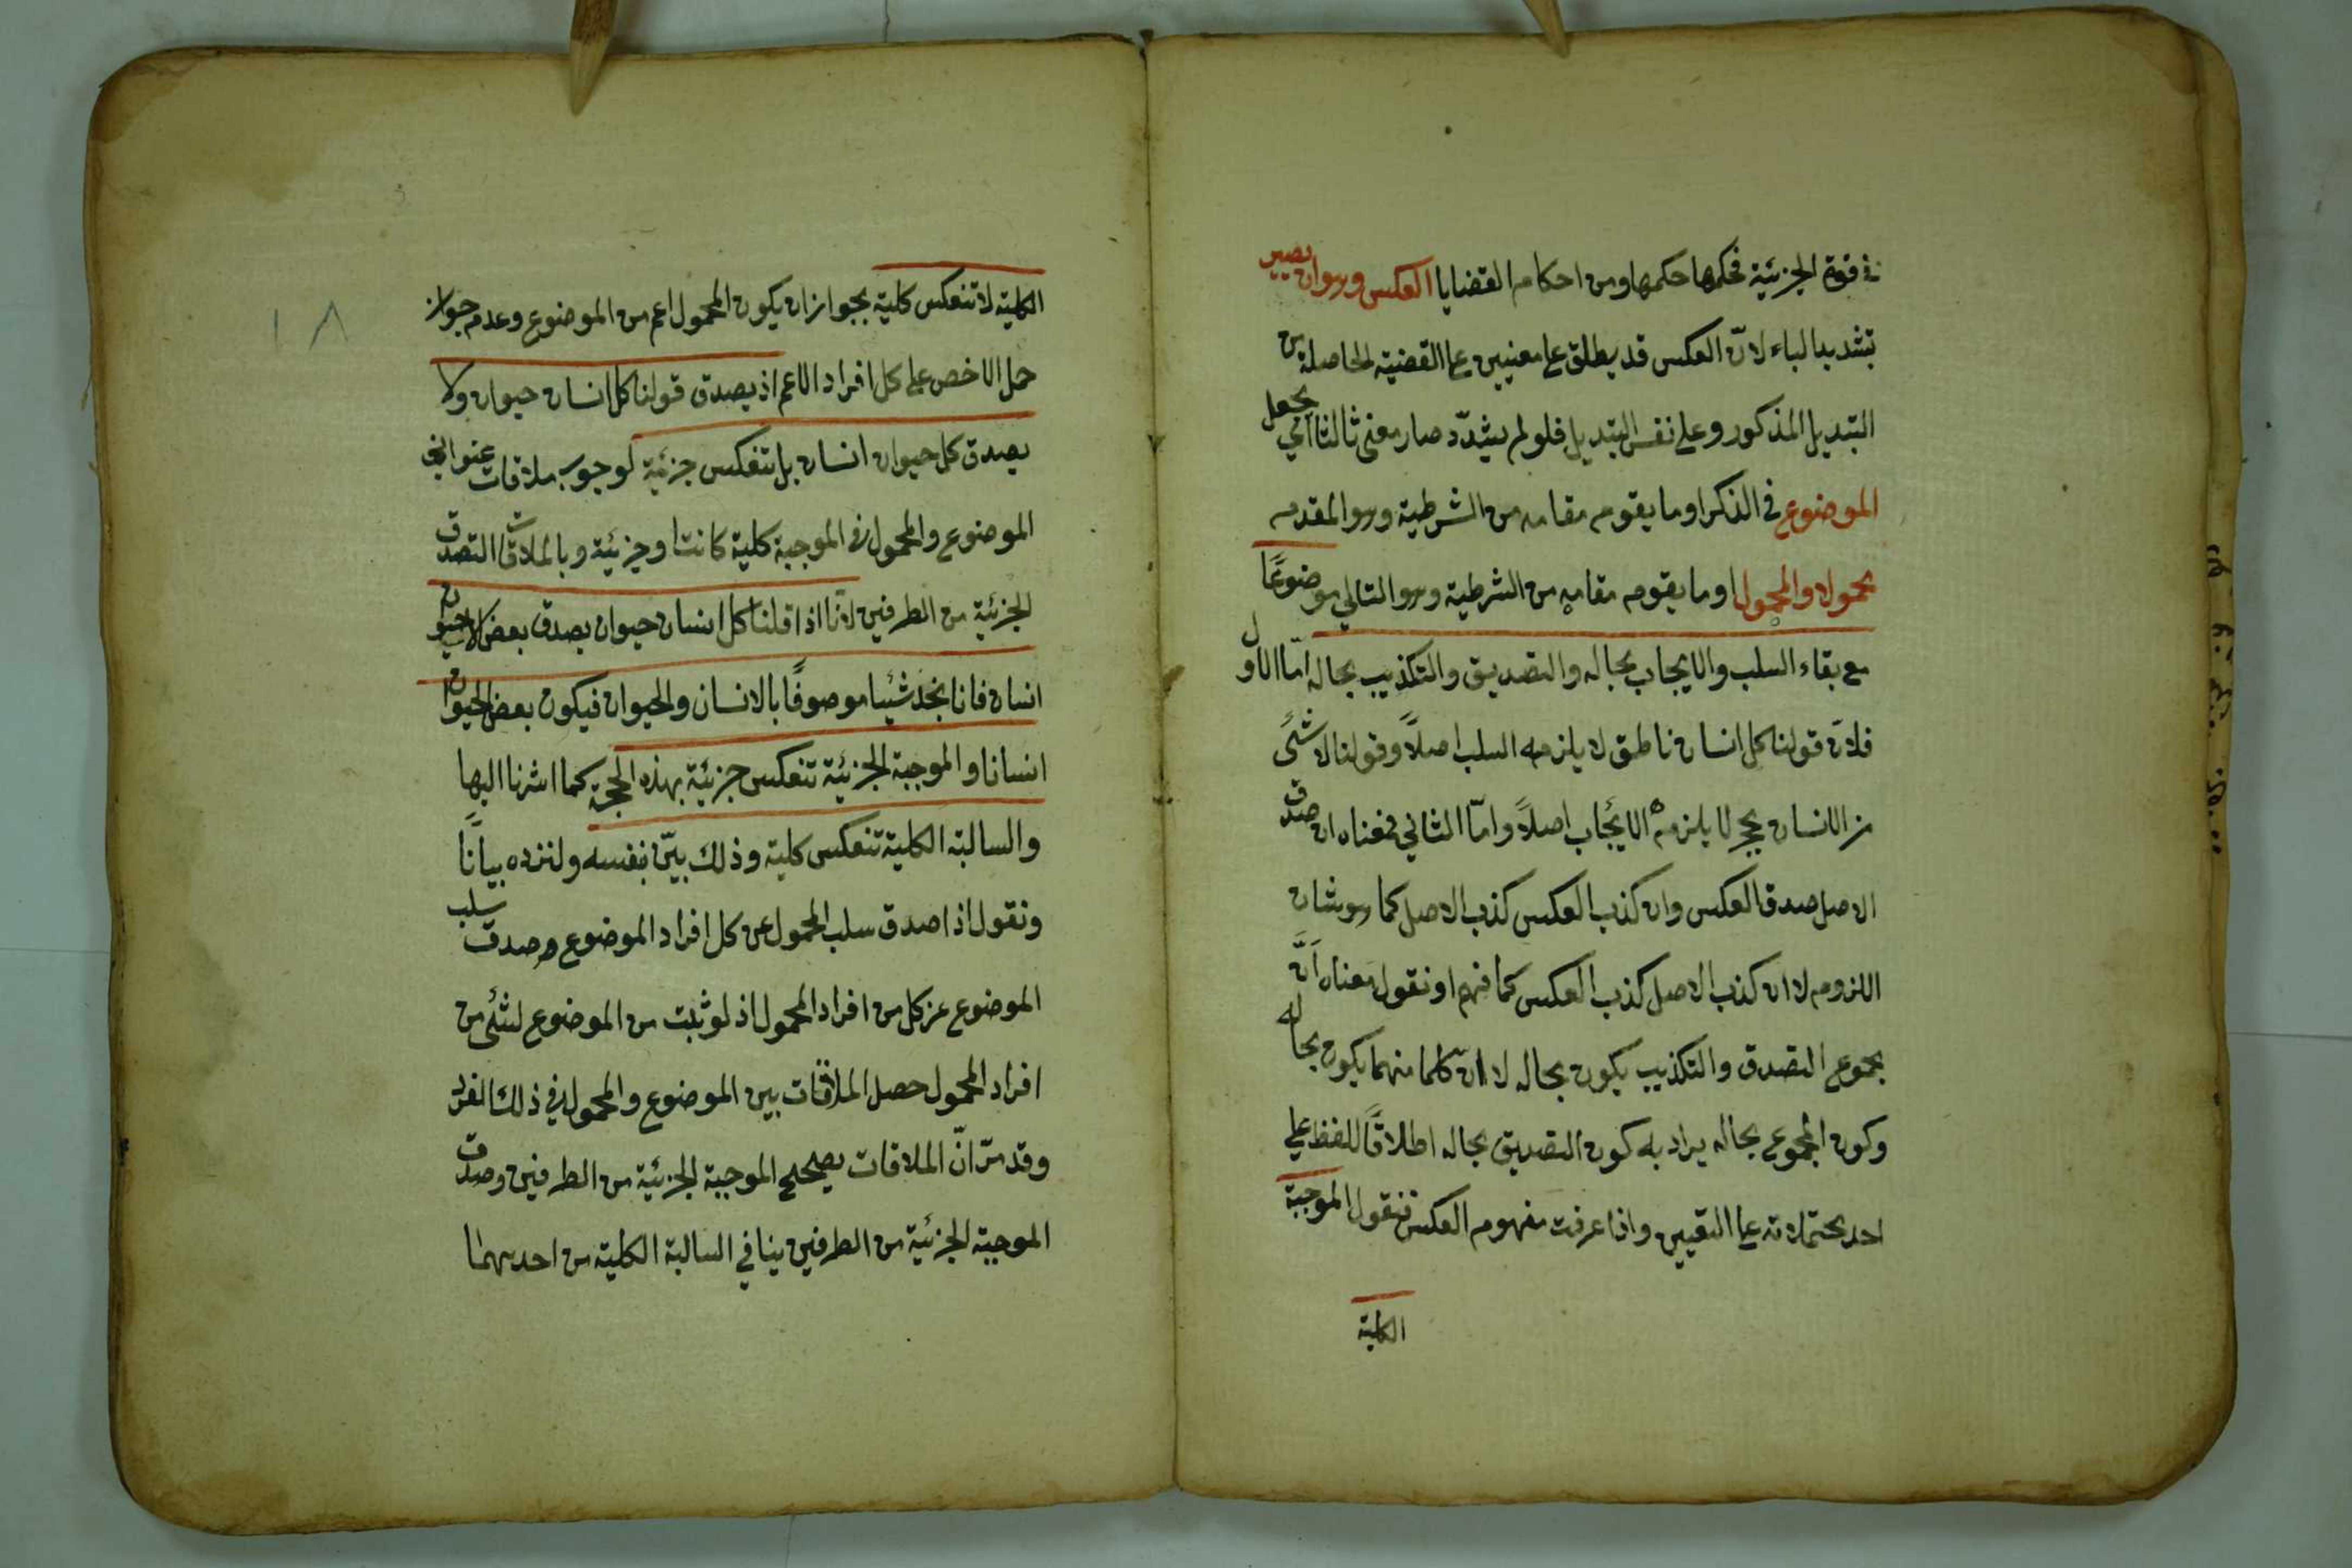 في قوة الجزئية فحكمها حكمها ومن احكام القضايا العكس وهو ان يصير
بتشديد الياء لانّ العكس قد يطلق على معنيين على القضية الحاصلة من
التبديل المذكور وعلى نفس التبديل فلو لم يشدّد صار معنى ثالثا اي يجعل
الموضوع في الذكر او ما يقوم مقامه من الشرطية وهو المقدم
محمولا والمحمول او ما يقوم مقامه من الشرطية وهو التالي موضوعًا
مع بقاء السلب والايجاب بحاله والتصديق والتكذيب بحاله امّا الاول
فلانّ قولنا كل انسان ناطق لا يلزمه السلب اصلاً وقولنا لا شئ
من الانسان بحجر لا يلزمه الايجاب اصلاً وامّا الثاني فمعناه ان صدق
الاصل صدق العكس وان كذب العكس كذب الاصل كما هو شان
اللزوم لا ان كذب الاصل كذب العكس كما فهم او نقول معناه انّ
مجموع التصدق والتكذيب يكون بحاله لا انّ كلما منهما يكون بحاله
وكون المجموع بحاله يراد به كون التصديق بحاله اطلاقًا للفظ على
احد محتملاته على التعيين واذا عرفت مفهوم العكس فنقول الموجبة
الكلية
١٨
الكلية لا تنعكس كلية بجواز ان يكون المحمول اعم من الموضوع وعدم جواز
حمل الاخص على كل افراد الاعم اذ يصدق قولنا كل انسان حيوان ولا
يصدق كل حيوان انسان بل تنعكس جزئية لوجوب ملاقات عنواني
الموضوع والمحمول في الموجبة كلية كانت او جزئية وبالملاقات التصدق
الجزئية من الطرفين لانّا اذا قلنا كل انسان حيوان يصدق بعض الحيوان
انسان فانا نجد شئيا موصوفًا بالانسان والحيوان فيكون بعض الحيوان
انسانا والموجبة الجزئية تنعكس جزئية بهذه الحجة كما اشرنا اليها
والسالبة الكلية تنعكس كلية وذلك بيّن بنفسه ولنزده بيانًا
ونقول اذا صدق سلب المحمول عن كل افراد الموضوع صدق سلب
الموضوع عن كل من افراد المحمول اذ لو ثبت من الموضوع لشئ من
افراد المحمول حصل الملاقات بين الموضوع والمحمول في ذلك الفرد
وقد مرّ انّ الملاقات يصحح الموجبة الجزئية من الطرفين وصدق
الموجبة الجزئية من الطرفين ينافي السالبة الكلية من احدهما